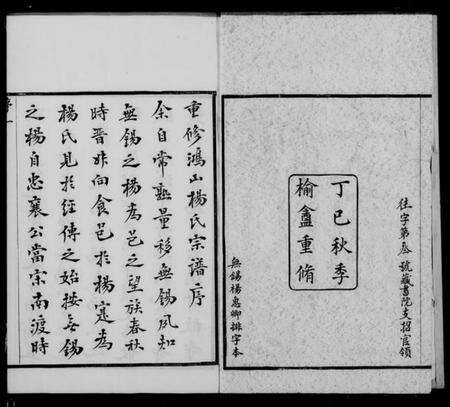 往字第叁號藏書院支招官領
丁巳秋季
榆盦重脩
無錫楊惠卿排字本
重修鴻山楊氏宗譜序
余自常熟量移無錫夙知
無錫之楊為邑之望族春秋
時晉叔向食邑於楊寔為
楊氏見於經傳之始按無錫
之楊自忠襄公當宋南渡時
序一